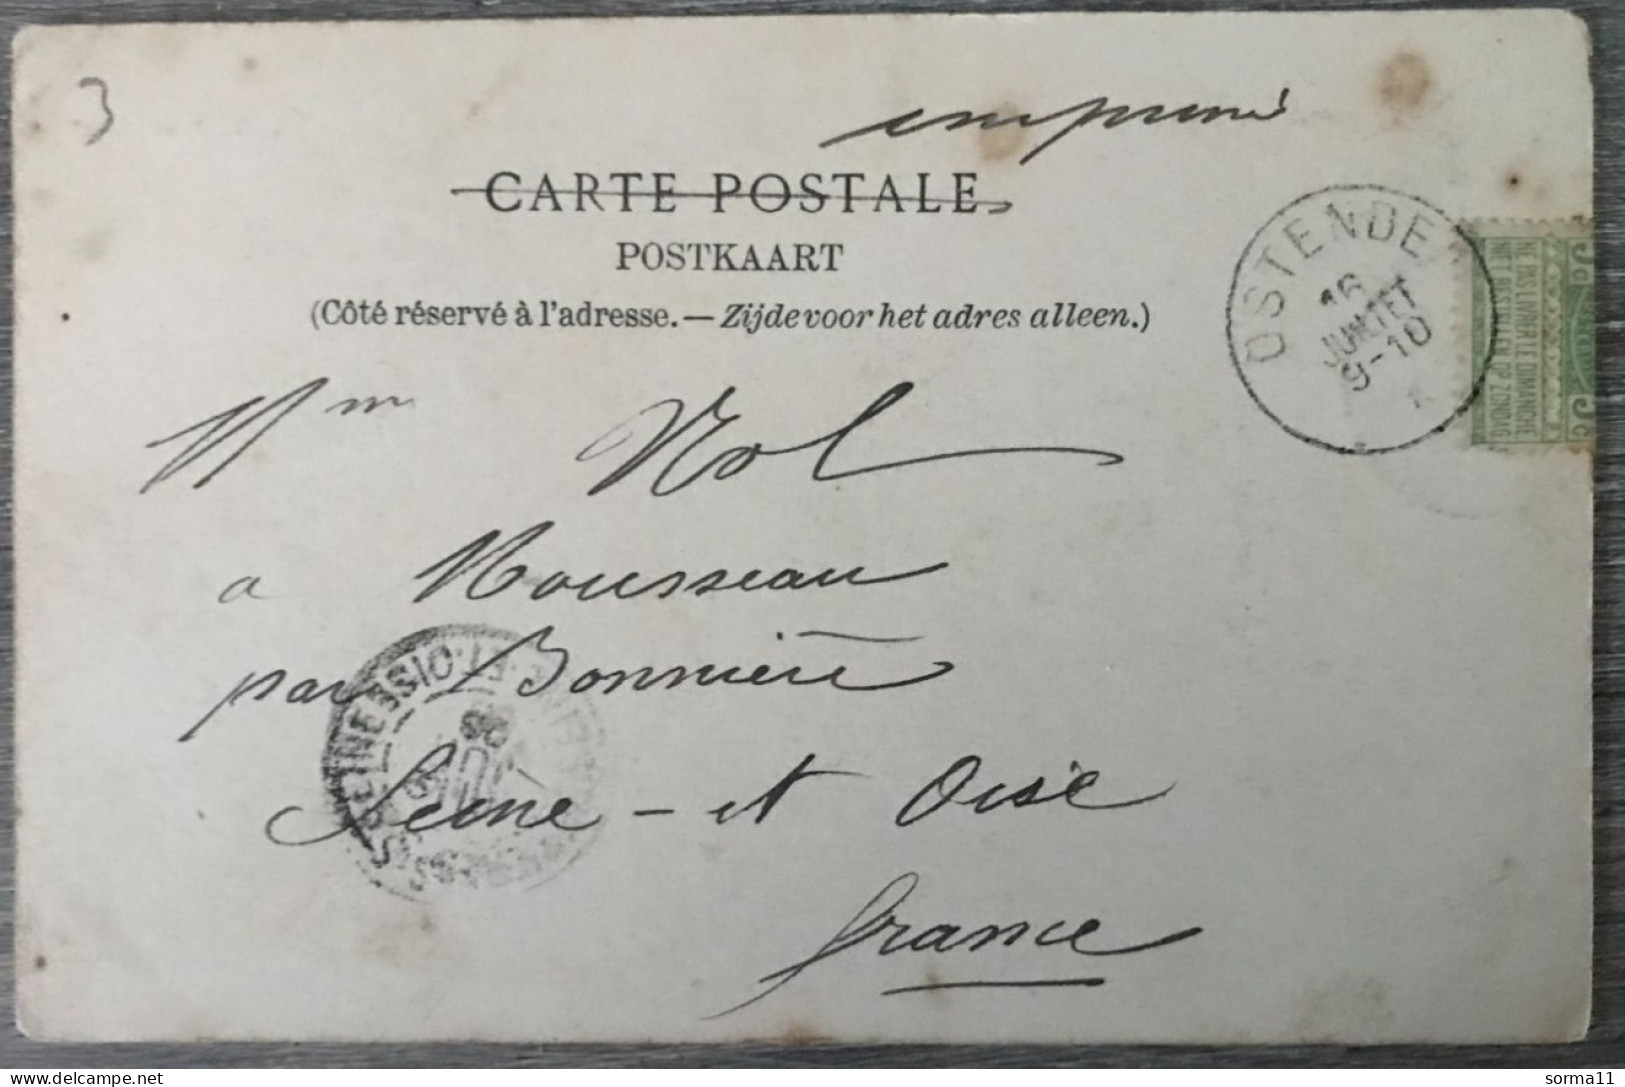 3
imprimé
CARTE POSTALE
POSTKAART
(Côté réservé à l'adresse. — Zijde voor het adres alleen.)
OSTENDE
16
JUILLET
9-10
NE PAS LIVRER LE DIMANCHE
NIET BESTELLEN OP ZONDAG
5c
5c
Mm Nol
a Mousseau
par Bonnière
Seine - et Oise
france
SEINE ET OISE
sorma11